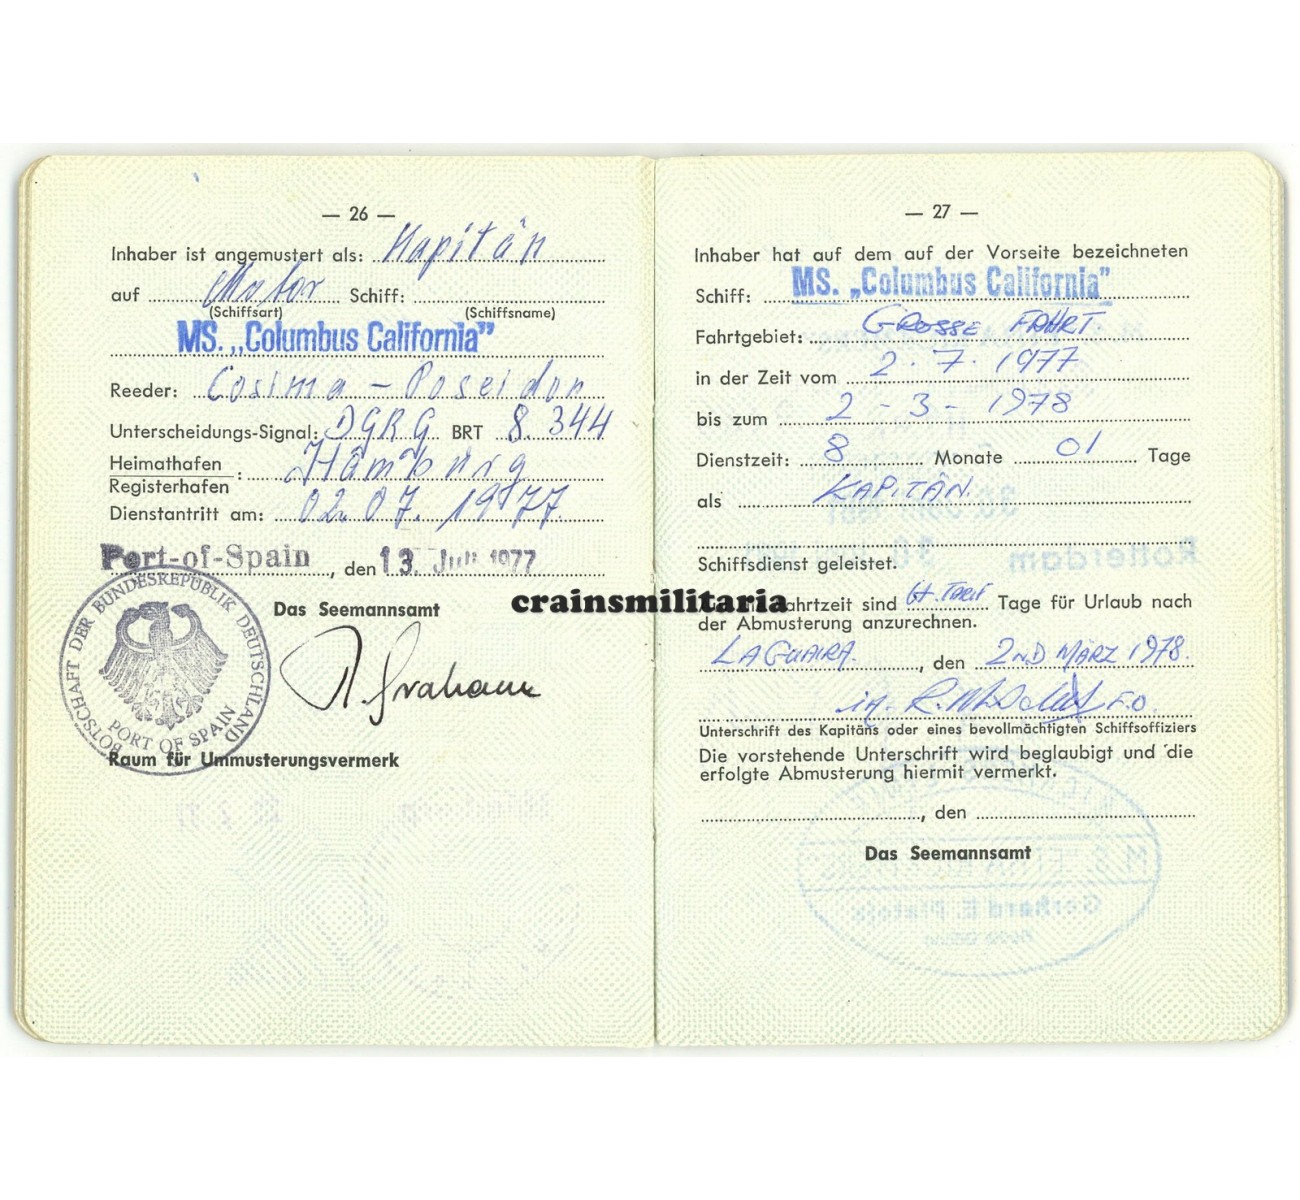 — 26 —
Inhaber ist angemustert als: Kapitän
auf Motor Schiff:
(Schiffsart) (Schiffsname)
MS. „Columbus California"
Reeder: Cosima - Poseidon
Unterscheidungs-Signal: DGRG BRT 8.344
Heimathafen
Registerhafen : Hamburg
Dienstantritt am: 02.07.1977
Port-of-Spain, den 13. Juli 1977
Das Seemannsamt
BOTSCHAFT DER BUNDESREPUBLIK DEUTSCHLAND
PORT OF SPAIN
Raum für Ummusterungsvermerk
— 27 —
Inhaber hat auf dem auf der Vorseite bezeichneten
Schiff: MS. „Columbus California"
Fahrtgebiet: GROSSE FAHRT
in der Zeit vom 2.7.1977
bis zum 2-3-1978
Dienstzeit: 8 Monate 01 Tage
als KAPITÄN.
Schiffsdienst geleistet.
crainsmilitaria
fahrtzeit sind Tage für Urlaub nach
der Abmusterung anzurechnen.
LA GUAIRA, den 2ND MÄRZ 1978.
Unterschrift des Kapitäns oder eines bevollmächtigten Schiffsoffiziers
Die vorstehende Unterschrift wird beglaubigt und die
erfolgte Abmusterung hiermit vermerkt.
, den
Das Seemannsamt